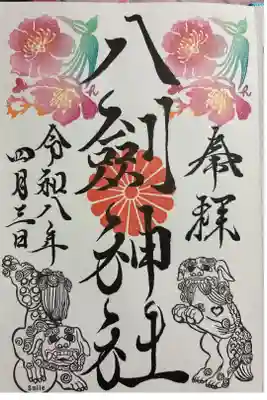 奉拝
八剱神社
令和八年
四月三日
Smile